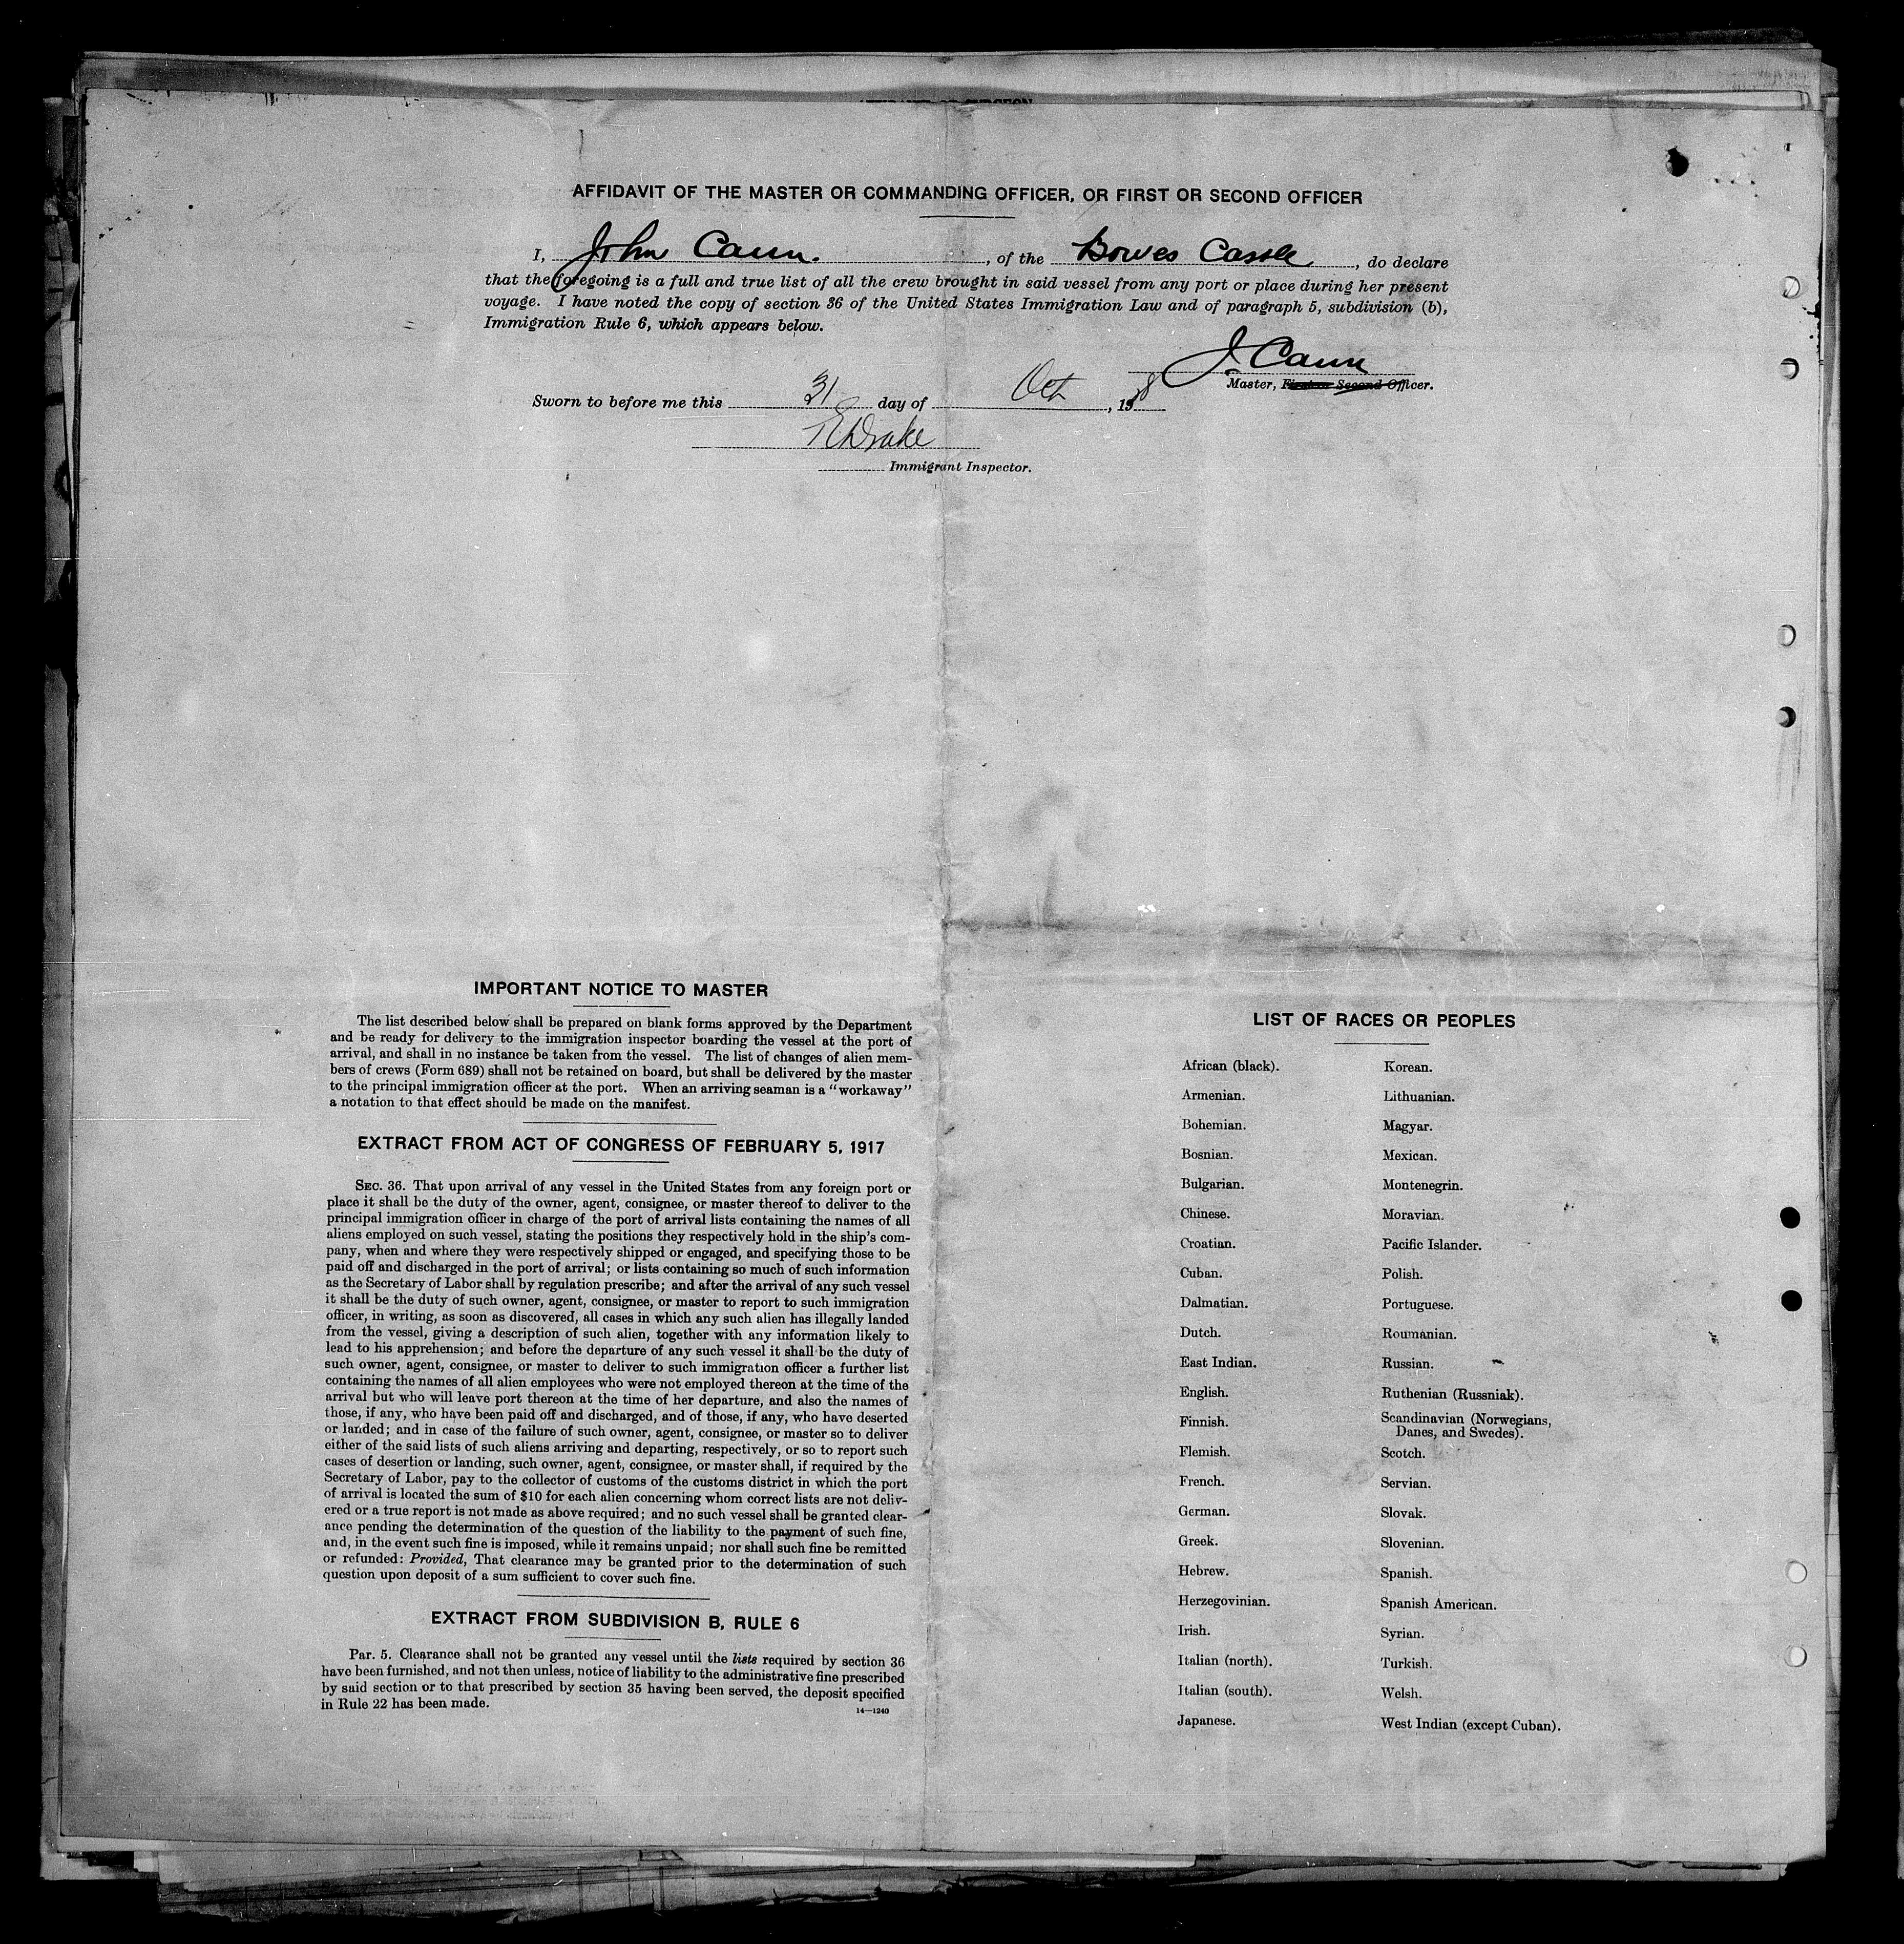 AFFIDAVIT OF THE MASTER OR COMMANDING OFFICER, OR FIRST OR SECOND OFFICER
I, John Cann. , of the Bowes Castle , do declare
that the foregoing is a full and true list of all the crew brought in said vessel from any port or place during her present
voyage. I have noted the copy of section 36 of the United States Immigration Law and of paragraph 5, subdivision (b),
Immigration Rule 6, which appears below.
J. Cann
Master, First or Second Officer.
Sworn to before me this 31 day of Oct , 19
Drake
Immigrant Inspector.
IMPORTANT NOTICE TO MASTER
The list described below shall be prepared on blank forms approved by the Department
and be ready for delivery to the immigration inspector boarding the vessel at the port of
arrival, and shall in no instance be taken from the vessel. The list of changes of alien mem-
bers of crews (Form 689) shall not be retained on board, but shall be delivered by the master
to the principal immigration officer at the port. When an arriving seaman is a "workaway"
a notation to that effect should be made on the manifest.
EXTRACT FROM ACT OF CONGRESS OF FEBRUARY 5, 1917
SEC. 36. That upon arrival of any vessel in the United States from any foreign port or
place it shall be the duty of the owner, agent, consignee, or master thereof to deliver to the
principal immigration officer in charge of the port of arrival lists containing the names of all
aliens employed on such vessel, stating the positions they respectively hold in the ship's com-
pany, when and where they were respectively shipped or engaged, and specifying those to be
paid off and discharged in the port of arrival; or lists containing so much of such information
as the Secretary of Labor shall by regulation prescribe; and after the arrival of any such vessel
it shall be the duty of such owner, agent, consignee, or master to report to such immigration
officer, in writing, as soon as discovered, all cases in which any such alien has illegally landed
from the vessel, giving a description of such alien, together with any information likely to
lead to his apprehension; and before the departure of any such vessel it shall be the duty of
such owner, agent, consignee, or master to deliver to such immigration officer a further list
containing the names of all alien employees who were not employed thereon at the time of the
arrival but who will leave port thereon at the time of her departure, and also the names of
those, if any, who have been paid off and discharged, and of those, if any, who have deserted
or landed; and in case of the failure of such owner, agent, consignee, or master so to deliver
either of the said lists of such aliens arriving and departing, respectively, or so to report such
cases of desertion or landing, such owner, agent, consignee, or master shall, if required by the
Secretary of Labor, pay to the collector of customs of the customs district in which the port
of arrival is located the sum of $10 for each alien concerning whom correct lists are not deliv-
ered or a true report is not made as above required; and no such vessel shall be granted clear-
ance pending the determination of the question of the liability to the payment of such fine,
and, in the event such fine is imposed, while it remains unpaid; nor shall such fine be remitted
or refunded: Provided, That clearance may be granted prior to the determination of such
question upon deposit of a sum sufficient to cover such fine.
EXTRACT FROM SUBDIVISION B, RULE 6
Par. 5. Clearance shall not be granted any vessel until the lists required by section 36
have been furnished, and not then unless, notice of liability to the administrative fine prescribed
by said section or to that prescribed by section 35 having been served, the deposit specified
in Rule 22 has been made.
14—1240
LIST OF RACES OR PEOPLES
African (black).
Armenian.
Bohemian.
Bosnian.
Bulgarian.
Chinese.
Croatian.
Cuban.
Dalmatian.
Dutch.
East Indian.
English.
Finnish.
Flemish.
French.
German.
Greek.
Hebrew.
Herzegovinian.
Irish.
Italian (north).
Italian (south).
Japanese.
Korean.
Lithuanian.
Magyar.
Mexican.
Montenegrin.
Moravian.
Pacific Islander.
Polish.
Portuguese.
Roumanian.
Russian.
Ruthenian (Russniak).
Scandinavian (Norwegians,
Danes, and Swedes).
Scotch.
Servian.
Slovak.
Slovenian.
Spanish.
Spanish American.
Syrian.
Turkish.
Welsh.
West Indian (except Cuban).